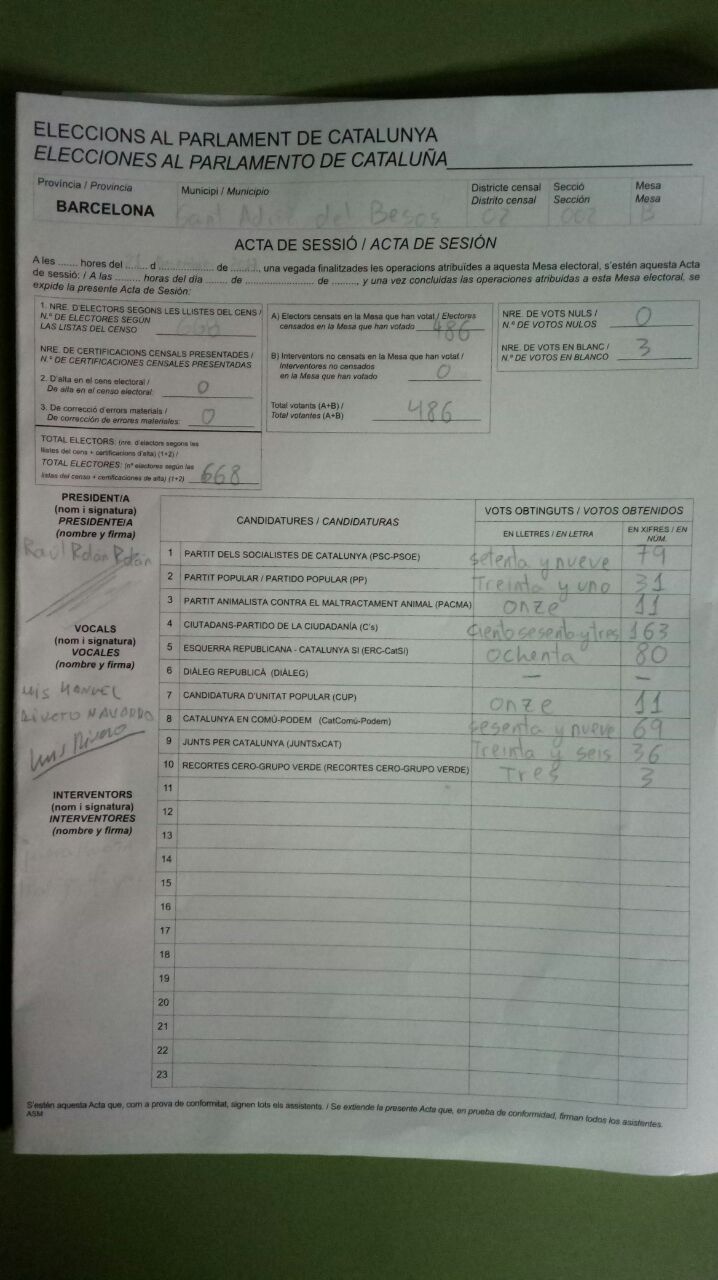 ELECCIONS AL PARLAMENT DE CATALUNYA
ELECCIONES AL PARLAMENTO DE CATALUÑA
Província / Provincia
BARCELONA
Municipi / Municipio
Sant Adrià del Besos
Districte censal
Distrito censal
02
Secció
Sección
002
Mesa
Mesa
B
ACTA DE SESSIÓ / ACTA DE SESIÓN
A les ....... hores del ....... d ......................... de .........., una vegada finalitzades les operacions atribuïdes a aquesta Mesa electoral, s'estén aquesta Acta
de sessió: / A las ......... horas del día ........ de ........................ de ........., y una vez concluidas las operaciones atribuidas a esta Mesa electoral, se
expide la presente Acta de Sesión:
1. NRE. D'ELECTORS SEGONS LES LLISTES DEL CENS /
N.º DE ELECTORES SEGÚN
LAS LISTAS DEL CENSO
NRE. DE CERTIFICACIONS CENSALS PRESENTADES /
N.º DE CERTIFICACIONES CENSALES PRESENTADAS
2. D'alta en el cens electoral /
De alta en el censo electoral: 0
3. De correcció d'errors materials /
De corrección de errores materiales: 0
TOTAL ELECTORS: (nre. d'electors segons les
llistes del cens + certificacions d'alta) (1+2) /
TOTAL ELECTORES: (nº electores según las
listas del censo + certificaciones de alta) (1+2) 668
A) Electors censats en la Mesa que han votat / Electores
censados en la Mesa que han votado 486
B) Interventors no censats en la Mesa que han votat /
Interventores no censados
en la Mesa que han votado 0
Total votants (A+B) /
Total votantes (A+B) 486
NRE. DE VOTS NULS /
N.º DE VOTOS NULOS 0
NRE. DE VOTS EN BLANC /
N.º DE VOTOS EN BLANCO 3
PRESIDENT/A
(nom i signatura)
PRESIDENTE/A
(nombre y firma)
Raúl Rolán Rolán
VOCALS
(nom i signatura)
VOCALES
(nombre y firma)
Luis MANUEL
Rivero NAVARRO
Luis Rivero
INTERVENTORS
(nom i signatura)
INTERVENTORES
(nombre y firma)
CANDIDATURES / CANDIDATURAS
VOTS OBTINGUTS / VOTOS OBTENIDOS
EN LLETRES / EN LETRA
EN XIFRES / EN NÚM.
1 PARTIT DELS SOCIALISTES DE CATALUNYA (PSC-PSOE) setenta y nueve 79
2 PARTIT POPULAR / PARTIDO POPULAR (PP) Treinta y uno 31
3 PARTIT ANIMALISTA CONTRA EL MALTRACTAMENT ANIMAL (PACMA) onze 11
4 CIUTADANS-PARTIDO DE LA CIUDADANÍA (C's) ciento sesenta y tres 163
5 ESQUERRA REPUBLICANA - CATALUNYA SI (ERC-CatSí) ochenta 80
6 DIÀLEG REPUBLICÀ (DIÀLEG) — —
7 CANDIDATURA D'UNITAT POPULAR (CUP) onze 11
8 CATALUNYA EN COMÚ-PODEM (CatComú-Podem) sesenta y nueve 69
9 JUNTS PER CATALUNYA (JUNTSxCAT) Treinta y seis 36
10 RECORTES CERO-GRUPO VERDE (RECORTES CERO-GRUPO VERDE) Tres 3
11
12
13
14
15
16
17
18
19
20
21
22
23
S'estén aquesta Acta que, com a prova de conformitat, signen tots els assistents. / Se extiende la presente Acta que, en prueba de conformidad, firman todos los asistentes.
ASM